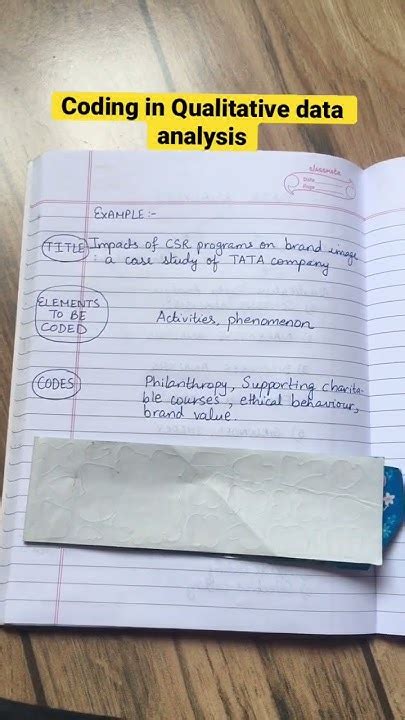 Coding in Qualitative data
analysis
classmate
Date
Page
EXAMPLE :-
TITLE Impacts of CSR programs on brand image
: a case study of TATA company
ELEMENTS
TO BE
CODED
Activities, phenomenon
CODES
Philanthropy, Supporting charita-
ble courses, ethical behaviour,
brand value.